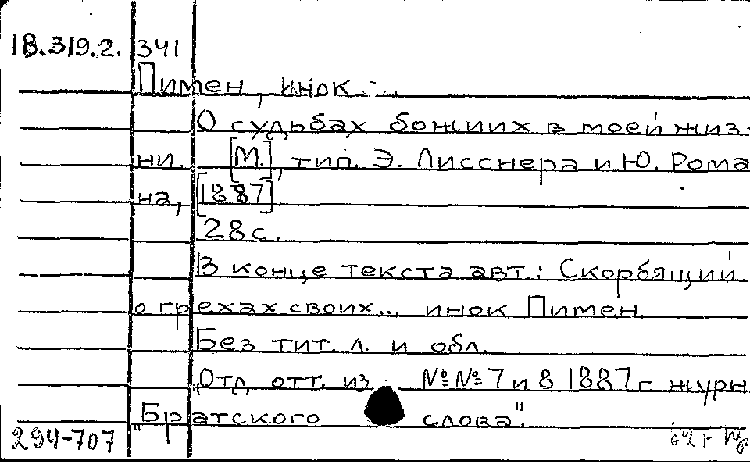 18.319.2. 341
Пимен, инок.
О судьбах божиих в моей жиз-
ни. [М.], тип. Э. Лисснера и Ю. Рома
на, [1887]
28 с.
В конце текста авт.: Скорбящий
о грехах своих... инок Пимен
Без тит. л. и обл.
Отд. отт. из №№ 7 и 8 1887 г. журн
"Братского слова".
294-707